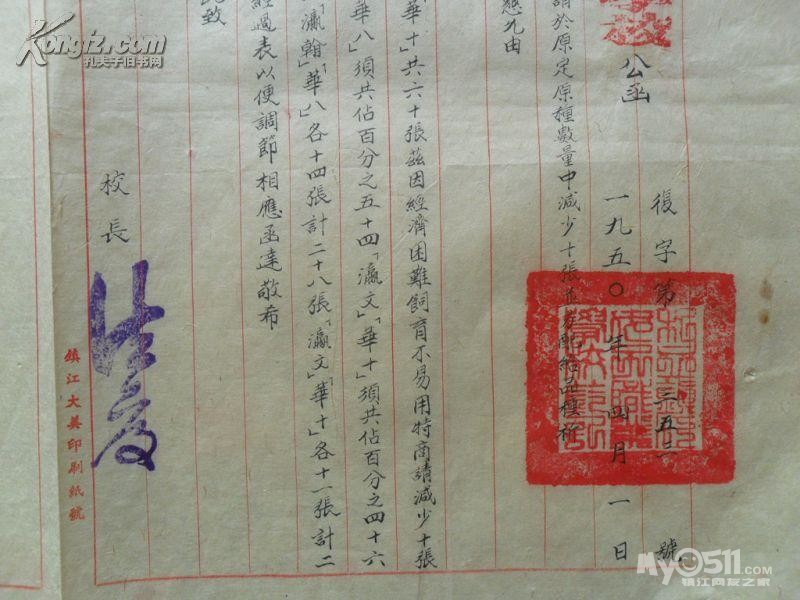 學校 公函
復字第 三五二 號
一九五〇年四月一日
請於原定原種數量中減少十張並分配給品種祈
懇允由
華十」共六十張茲因經濟困難飼育不易用特商請減少十張
華八」須共佔百分之五十四「瀛文」「華十」須共佔百分之四十六
「瀛翰」「華八」各十四張計二十八張「瀛文」「華十」各十一張計二
經過表以便調節相應函達敬希
此致
校長
鎮江大美印刷紙號
Kongfz.com
孔夫子旧书网
My0511.com
镇江网友之家